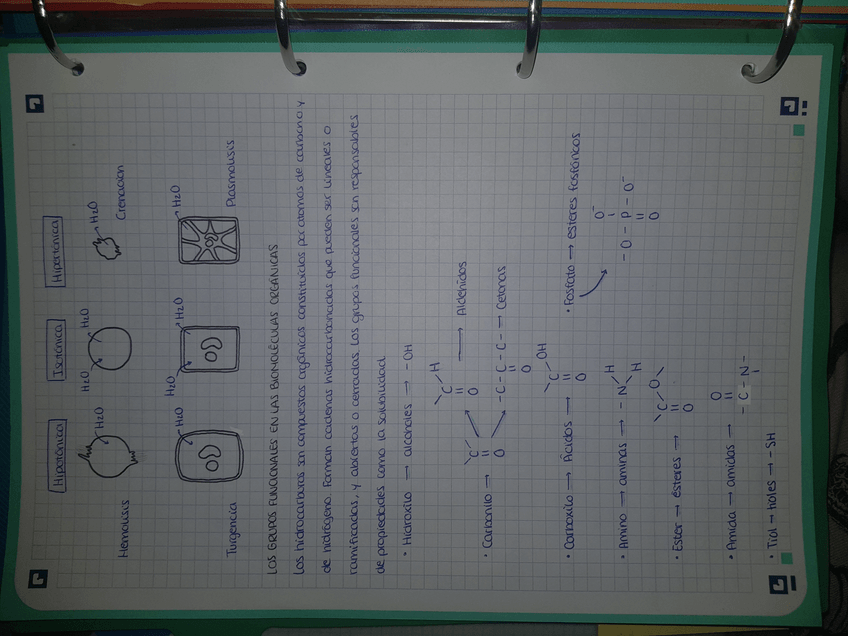 Hipotónica Isotónica Hipertónica
H2O H2O H2O H2O
Hemolisis Crenacion
H2O H2O H2O H2O
Turgencia Plasmolisis
LOS GRUPOS FUNCIONALES EN LAS BIOMOLÉCULAS ORGÁNICAS
Los hidrocarburos son compuestos orgánicos constituidos por atomos de carbono y
de hidrógeno. Forman cadenas hidrocarbonadas que pueden ser lineales o
ramificadas, y abiertas o cerradas. Los grupos funcionales son responsables
de propiedades como la solubilidad.
• Hidroxilo → alcoholes → -OH
C H O → Aldehidos
• Carbonilo → C O
-C-C-C- → Cetonas
O
• Carboxilo → Ácidos → C OH O
• Fosfato → esteres fosfóricos
O⁻
-O-P-O⁻
O
• Amino → aminas → -N H H
• Ester → ésteres → C O O
• Amida → amidas → O -C-N-
• Tiol → tioles → -SH